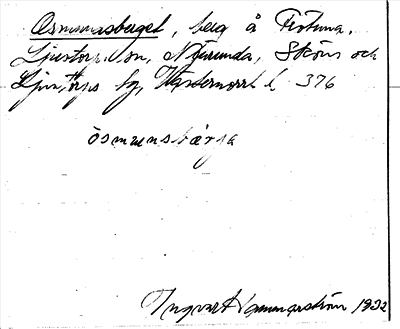 Osmunsberget, berg å Frötuna,
Ljustorps sn, Njurunda, Sköns och
Ljustorps tg, Västernorrl l, 376
ösmunsbærje
Ingvar Hammarström 1932